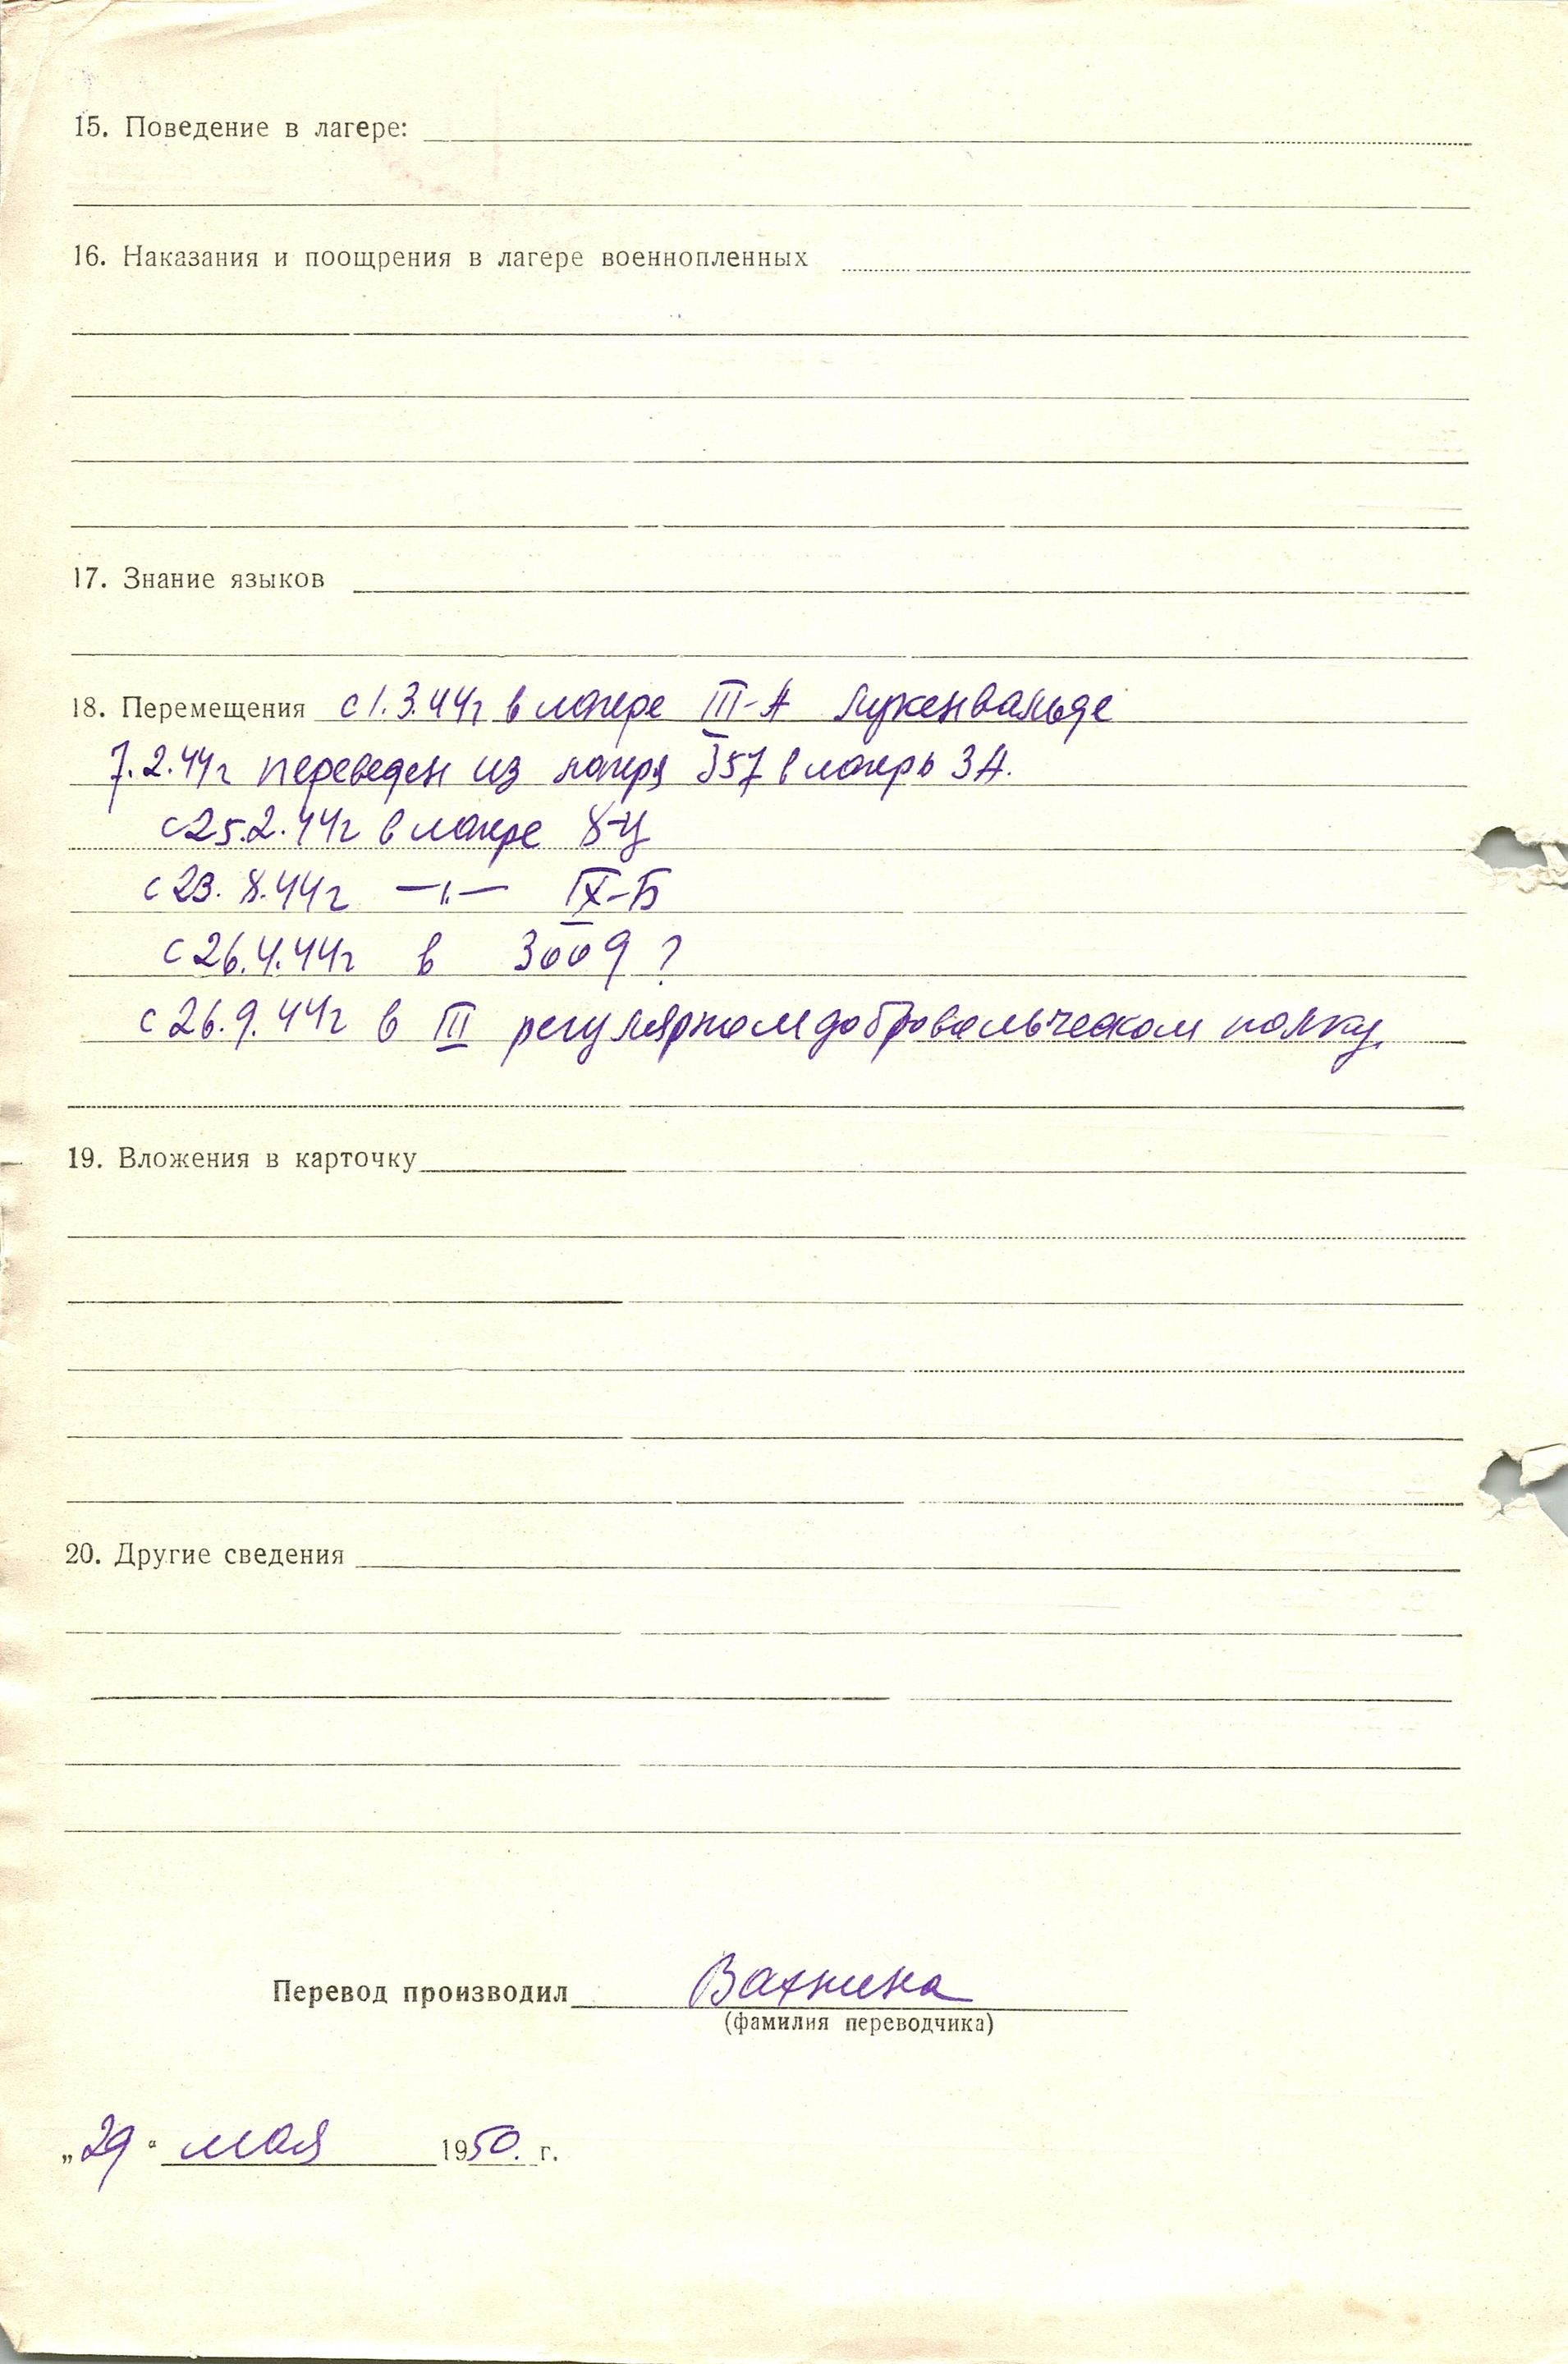 15. Поведение в лагере:
16. Наказания и поощрения в лагере военнопленных
17. Знание языков
18. Перемещения с 1.3.44г в лагере III-А Лукенвальде
7.2.44г переведен из лагеря 357 в лагерь 3А.
с 25.2.44г в лагере 8-Ц
с 23.8.44г —"— IX-Б
с 26.4.44г в 3009 ?
с 26.9.44г в III регулярном добровольческом полку.
19. Вложения в карточку
20. Другие сведения
Перевод производил Вахнина
(фамилия переводчика)
„29“ мая 1950. г.